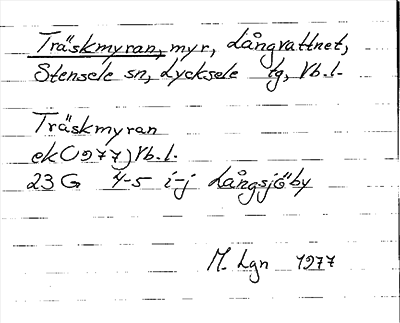 Träskmyran, myr, Långvattnet,
Stensele sn, Lycksele lg, Vb.l.
Träskmyran
ek(1977) Vb.l.
23 G 4-5 i-j Långsjöby
M. Lgn 1977